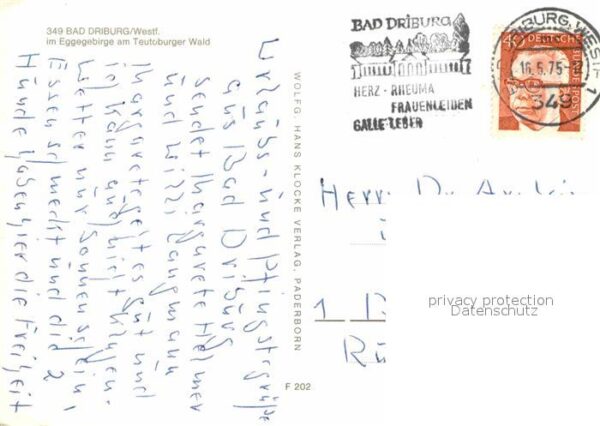 349 BAD DRIBURG/Westf.
im Eggegebirge am Teutoburger Wald
Urlaubs- und Pfingstgrüße
aus Bad Driburg
sendet Margarete Helmer
und Willi Langmann
Margarete geht es gut und
ich kann auch nicht klagen.
Wetter nur Sonnenschein,
Essen schmeckt und die 2
Hunde haben hier die Freiheit
WOLFG. HANS KLOCKE VERLAG, PADERBORN
F 202
BAD DRIBURG
HERZ - RHEUMA
FRAUENLEIDEN
GALLE-LEBER
DRIBURG, WESTF
16.5.75
349
1
40
DEUTSCHE
BUNDESPOST
Herr Dr
1
privacy protection
Datenschutz